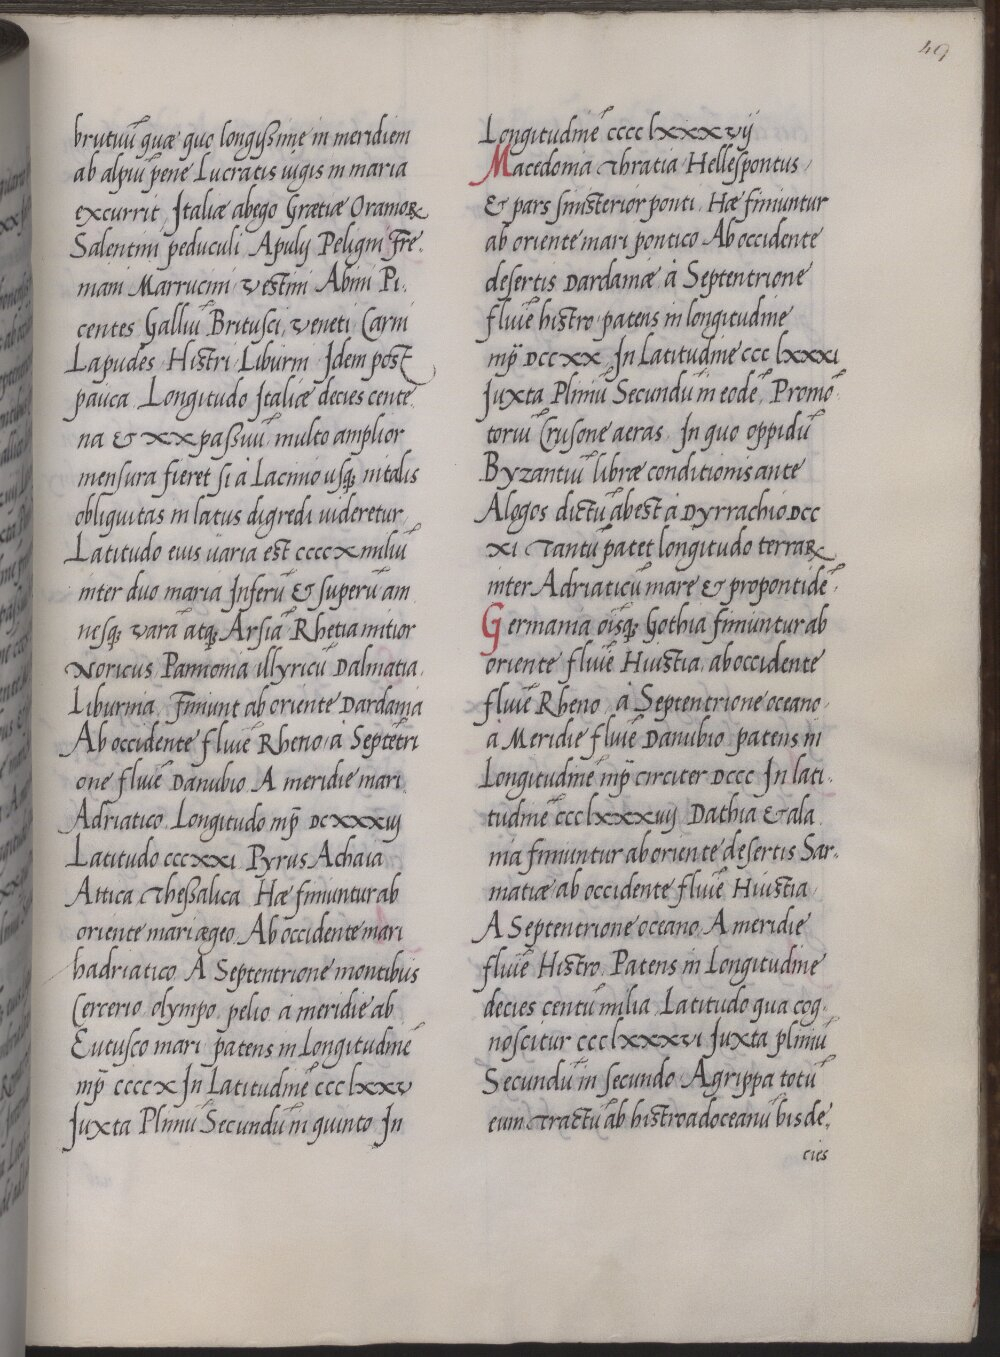 49
brutuū quæ quo longyßime in meridiem
ab alpiū pene Lucratis iugis in maria
excurrit, Italiæ abego Grætiæ Oramoꝝ
Salentini peduculi Apulij Peligni Fre.
mani Marrucini vestini Abini Pi.
centes Galliū Britusci, veneti Carni
Lapudes Histri Liburni Idem post
pauca Longitudo Italiæ decies cente
na & xx paßuū multo amplior
mensura fieret si à Lacinio usq; nitalis
obliquitas in latus digredi uideretur,
Latitudo euis uaria est ccccx miliū
inter duo maria Inferū & superū am
nesq; varā atq; Arsiā Rhetia mitior
Noricus Pannonia illyricū Dalmatia.
Liburnia, Finiunt ab oriente Dardania
Ab occidente fluuiē Rheno, à Septētri
one fluuiē Danubio A meridie mari
Adriatico Longitudo mp̄ DCxxxiij
Latitudo cccxxi Pyrus Achaia
Attica Theßalica Hæ finiuntur ab
oriente mari ægeo Ab occidente mari
hadriatico A Septentrione montibus
Cercerio olympo pelio a meridie ab
Eutusco mari patens in Longitudinē
mp̄ ccccx In Latitudinē ccc lxxv
Juxta Pliniū Secundū in quinto In
Longitudinē cccc lxxxvij
Macedonia Thratia Hellespontus,
& pars sinisterior ponti. Hæ finiuntur
ab oriente mari pontico Ab occidente
desertis Dardaniæ à Septentrione
fluuiē histro patens in longitudinē
mp̄ Dccxx In Latitudine ccc lxxxi
Juxta Pliniū Secundū in eodē, Promō
toriū Crusone aeras, In quo oppidū
Byzantiū libræ conditionis ante
Alogos dictū abest à Dyrrachio DCC
xi Tantū patet longitudo terraꝝ
inter Adriaticū mare & propontidē.
Germania oīsq; Gothia finiuntur ab
oriente fluuiē Hiustia, ab occidente
fluuiē Rheno, à Septentrione oceano,
à Meridie fluuiē Danubio patens in
Longitudinē mp̄ circiter Dccc In lati.
tudinē ccc lxxxiiij Dathia & ala
nia finiuntur ab oriente desertis Sar.
matiæ ab occidente fluuiē Hiustia,
A Septentrione oceano A meridie
fluuiē Histro Patens in Longitudine
decies centū milia Latitudo qua cog.
noscitur ccc lxxxvi Juxta pliniū
Secundū in secundo Agrippa totū
eum tractū ab histro ad oceanū bis de.
cies